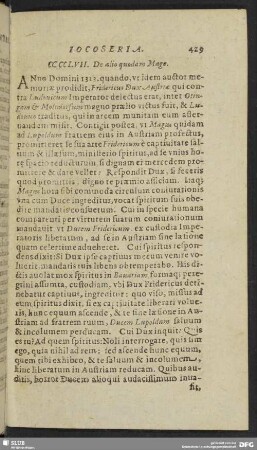 IOCOSERIA. 429
CCCCLVII. De alio quodam Mago.
ANno Domini 1323. quando, vt idem auctor me-
moriæ prodidit, Fridericus Dux Austriæ qui con-
tra Ludouicum Imperator delectus erat, inter Oetin-
gam & Molndorfium magno prælio victus fuit, & Lu-
douico traditus, qui in arcem munitam eum asser-
uandum misit. Contigit postea, vt Magus quidam
ad Lupoldum fratrem eius in Austriam profectus,
promitteret se fratrem e captiuitate saluum
& illæsum, ministerio spiritus, ad se vnius ho-
ræ spacio reducturum, si dignum ei mercedem pro-
mittere & dare vellet. Respondit Dux, si feceris
quod promittis, digno te præmio afficiam. Itaque
Magus hora sibi commoda circulum coniurationis
vna cum Duce ingreditur, vocat spiritum suis obe-
dire mandatis consuetum. Cui in specie humana
comparenti per virtutem suarum coniurationum
mandauit vt Ducem Fridericum ex custodia Impe-
ratoris liberatum, ad se in Austriam sine læsione
quam celerrime adueheret. Cui spiritus respon-
dens dixit: Si Dux ipse captiuus mecum venire vo-
luerit, mandatis tuis libens obtemperabo. His di-
ctis auolat mox spiritus in Bauariam: formaque pere-
grini assumta, custodiam, vbi Dux Fridericus deti-
nebatur captiuus, ingreditur: quo viso, missus ad
eum spiritus dixit, si ex captiuitate liberari volue-
ris, hunc equum ascende, & te sine læsione in Au-
striam ad fratrem tuum, Ducem Lupoldum saluum
& incolumem perducam. Cui Dux inquit: Quis
es tu? Ad quem spiritus: Noli interrogare, quis sim
ego, quia nihil ad rem; sed ascende hunc equum,
quem tibi exhibeo, & te saluum & incolumem,
hinc liberatum in Austriam reducam. Quibus au-
ditis, horror Ducem alioqui audacissimum inua-
sit,
SLUB
DFG